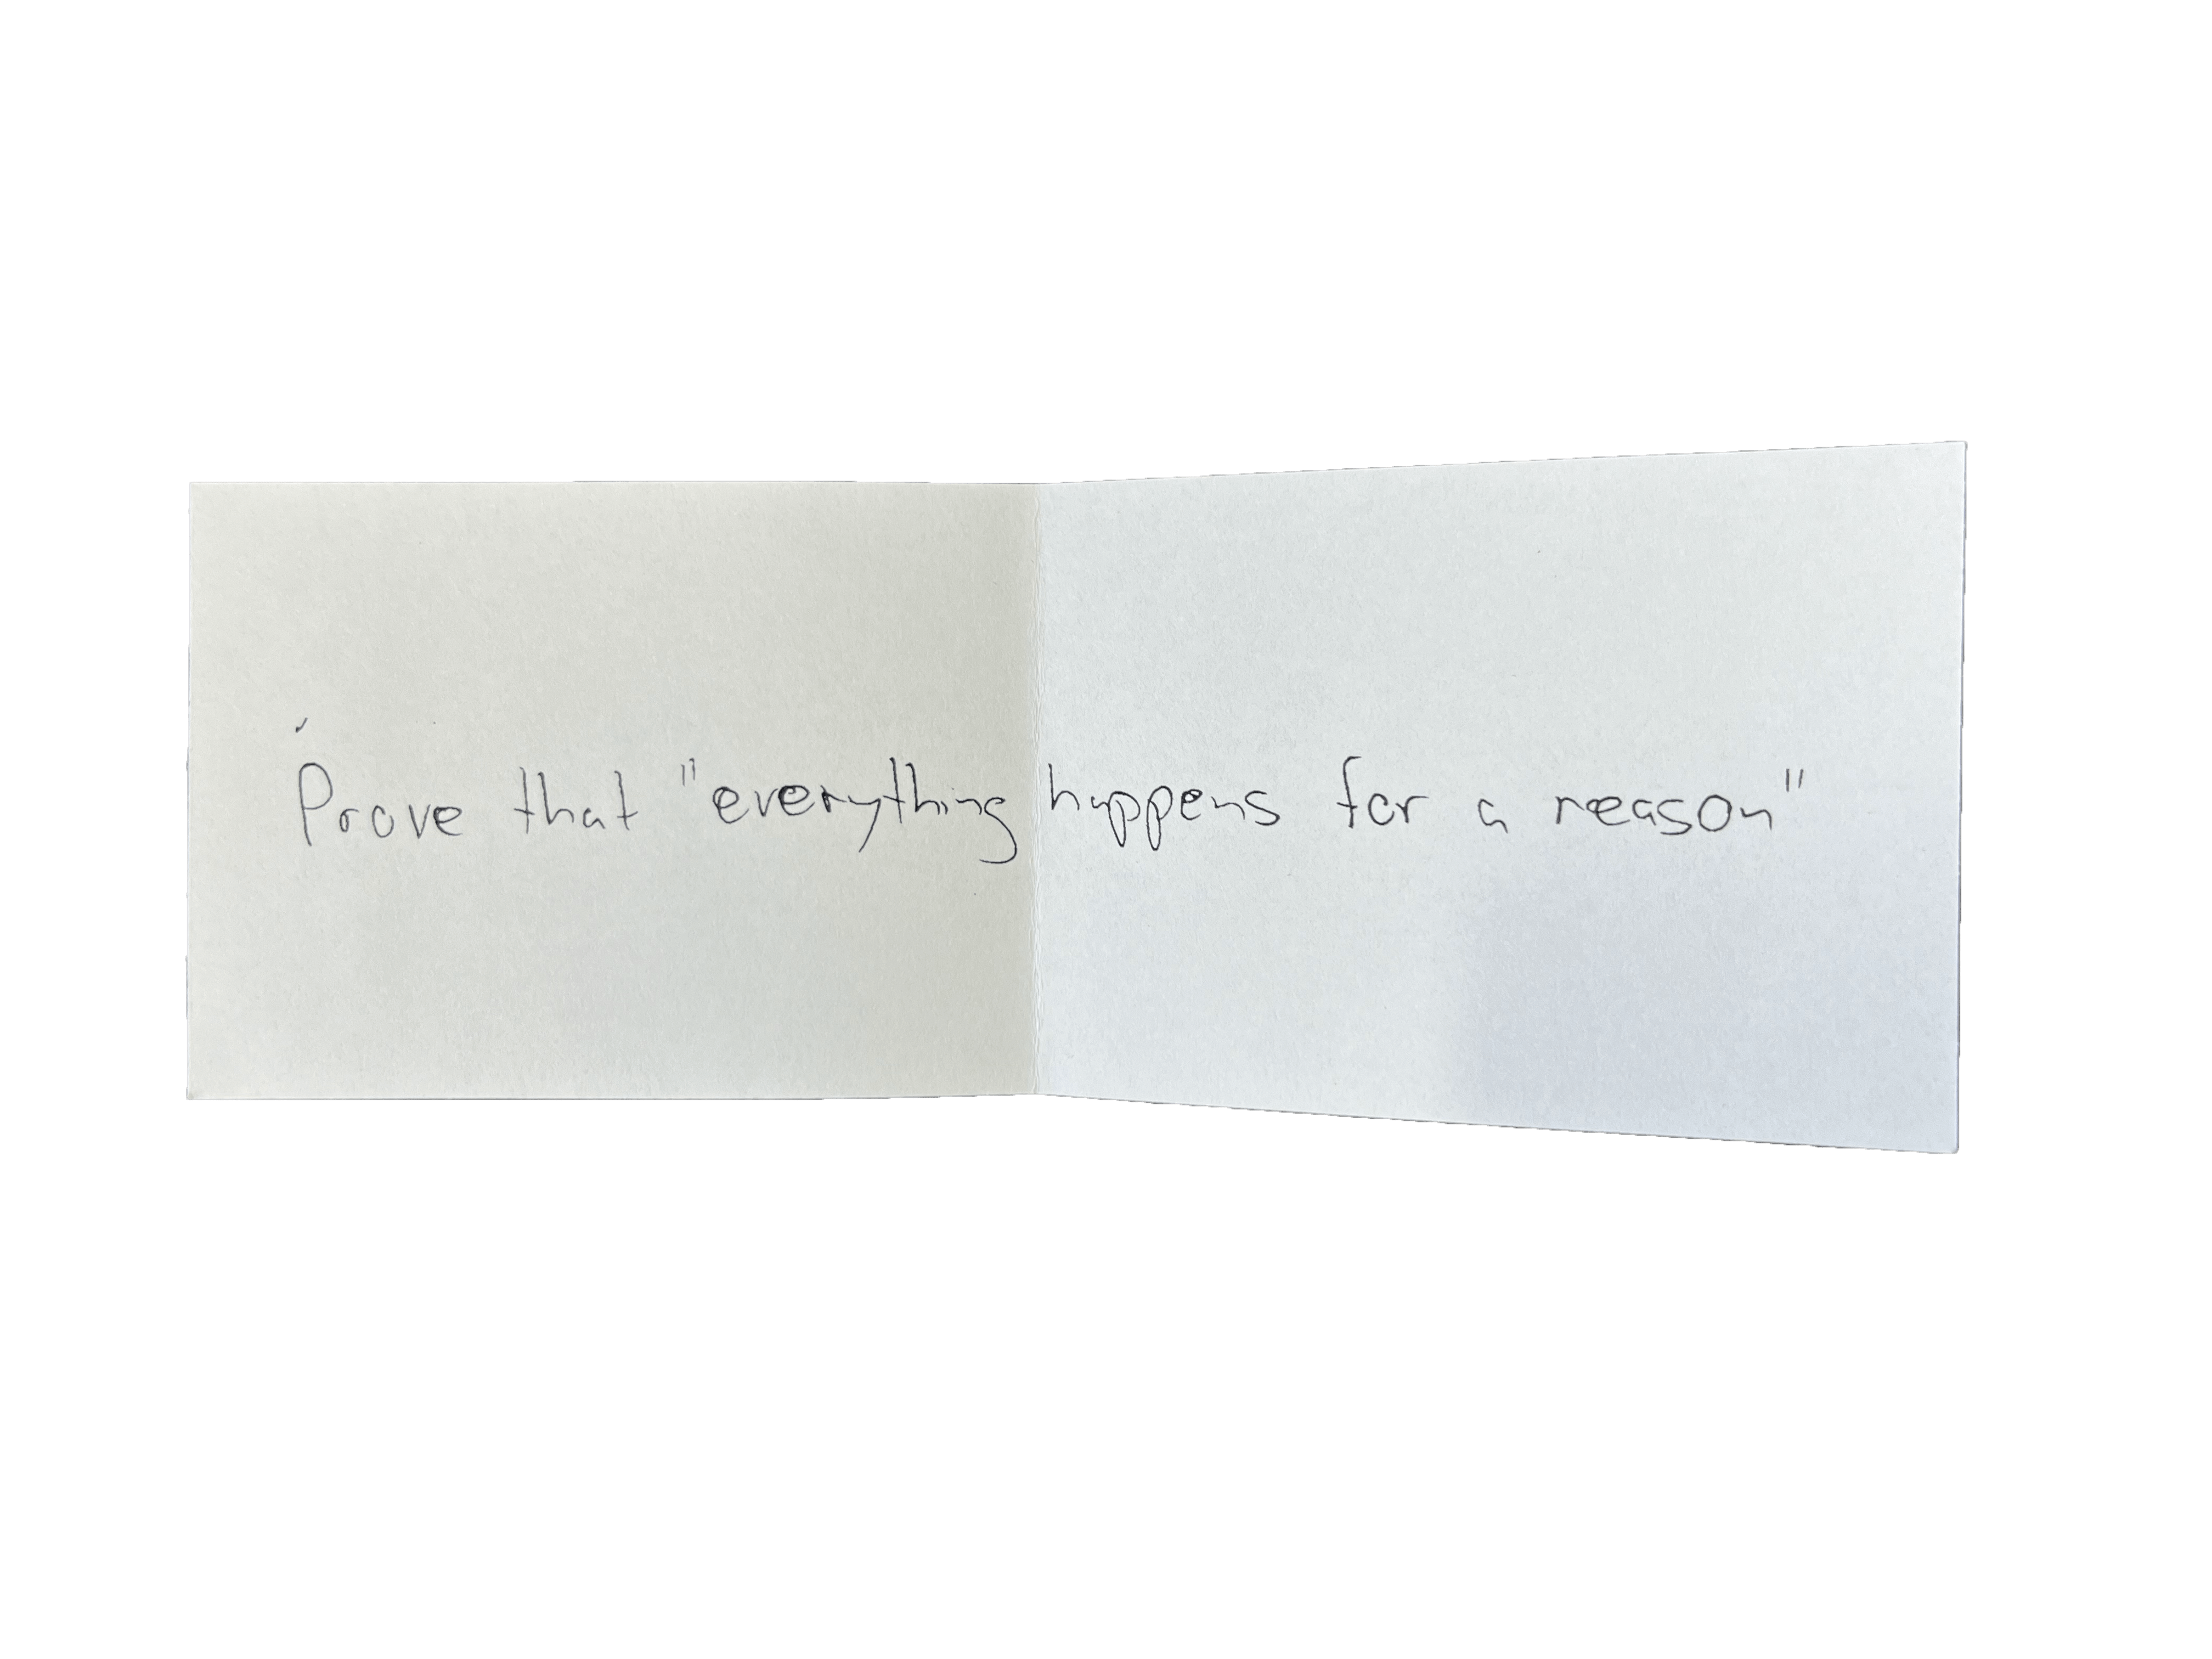 Prove that "everything happens for a reason"